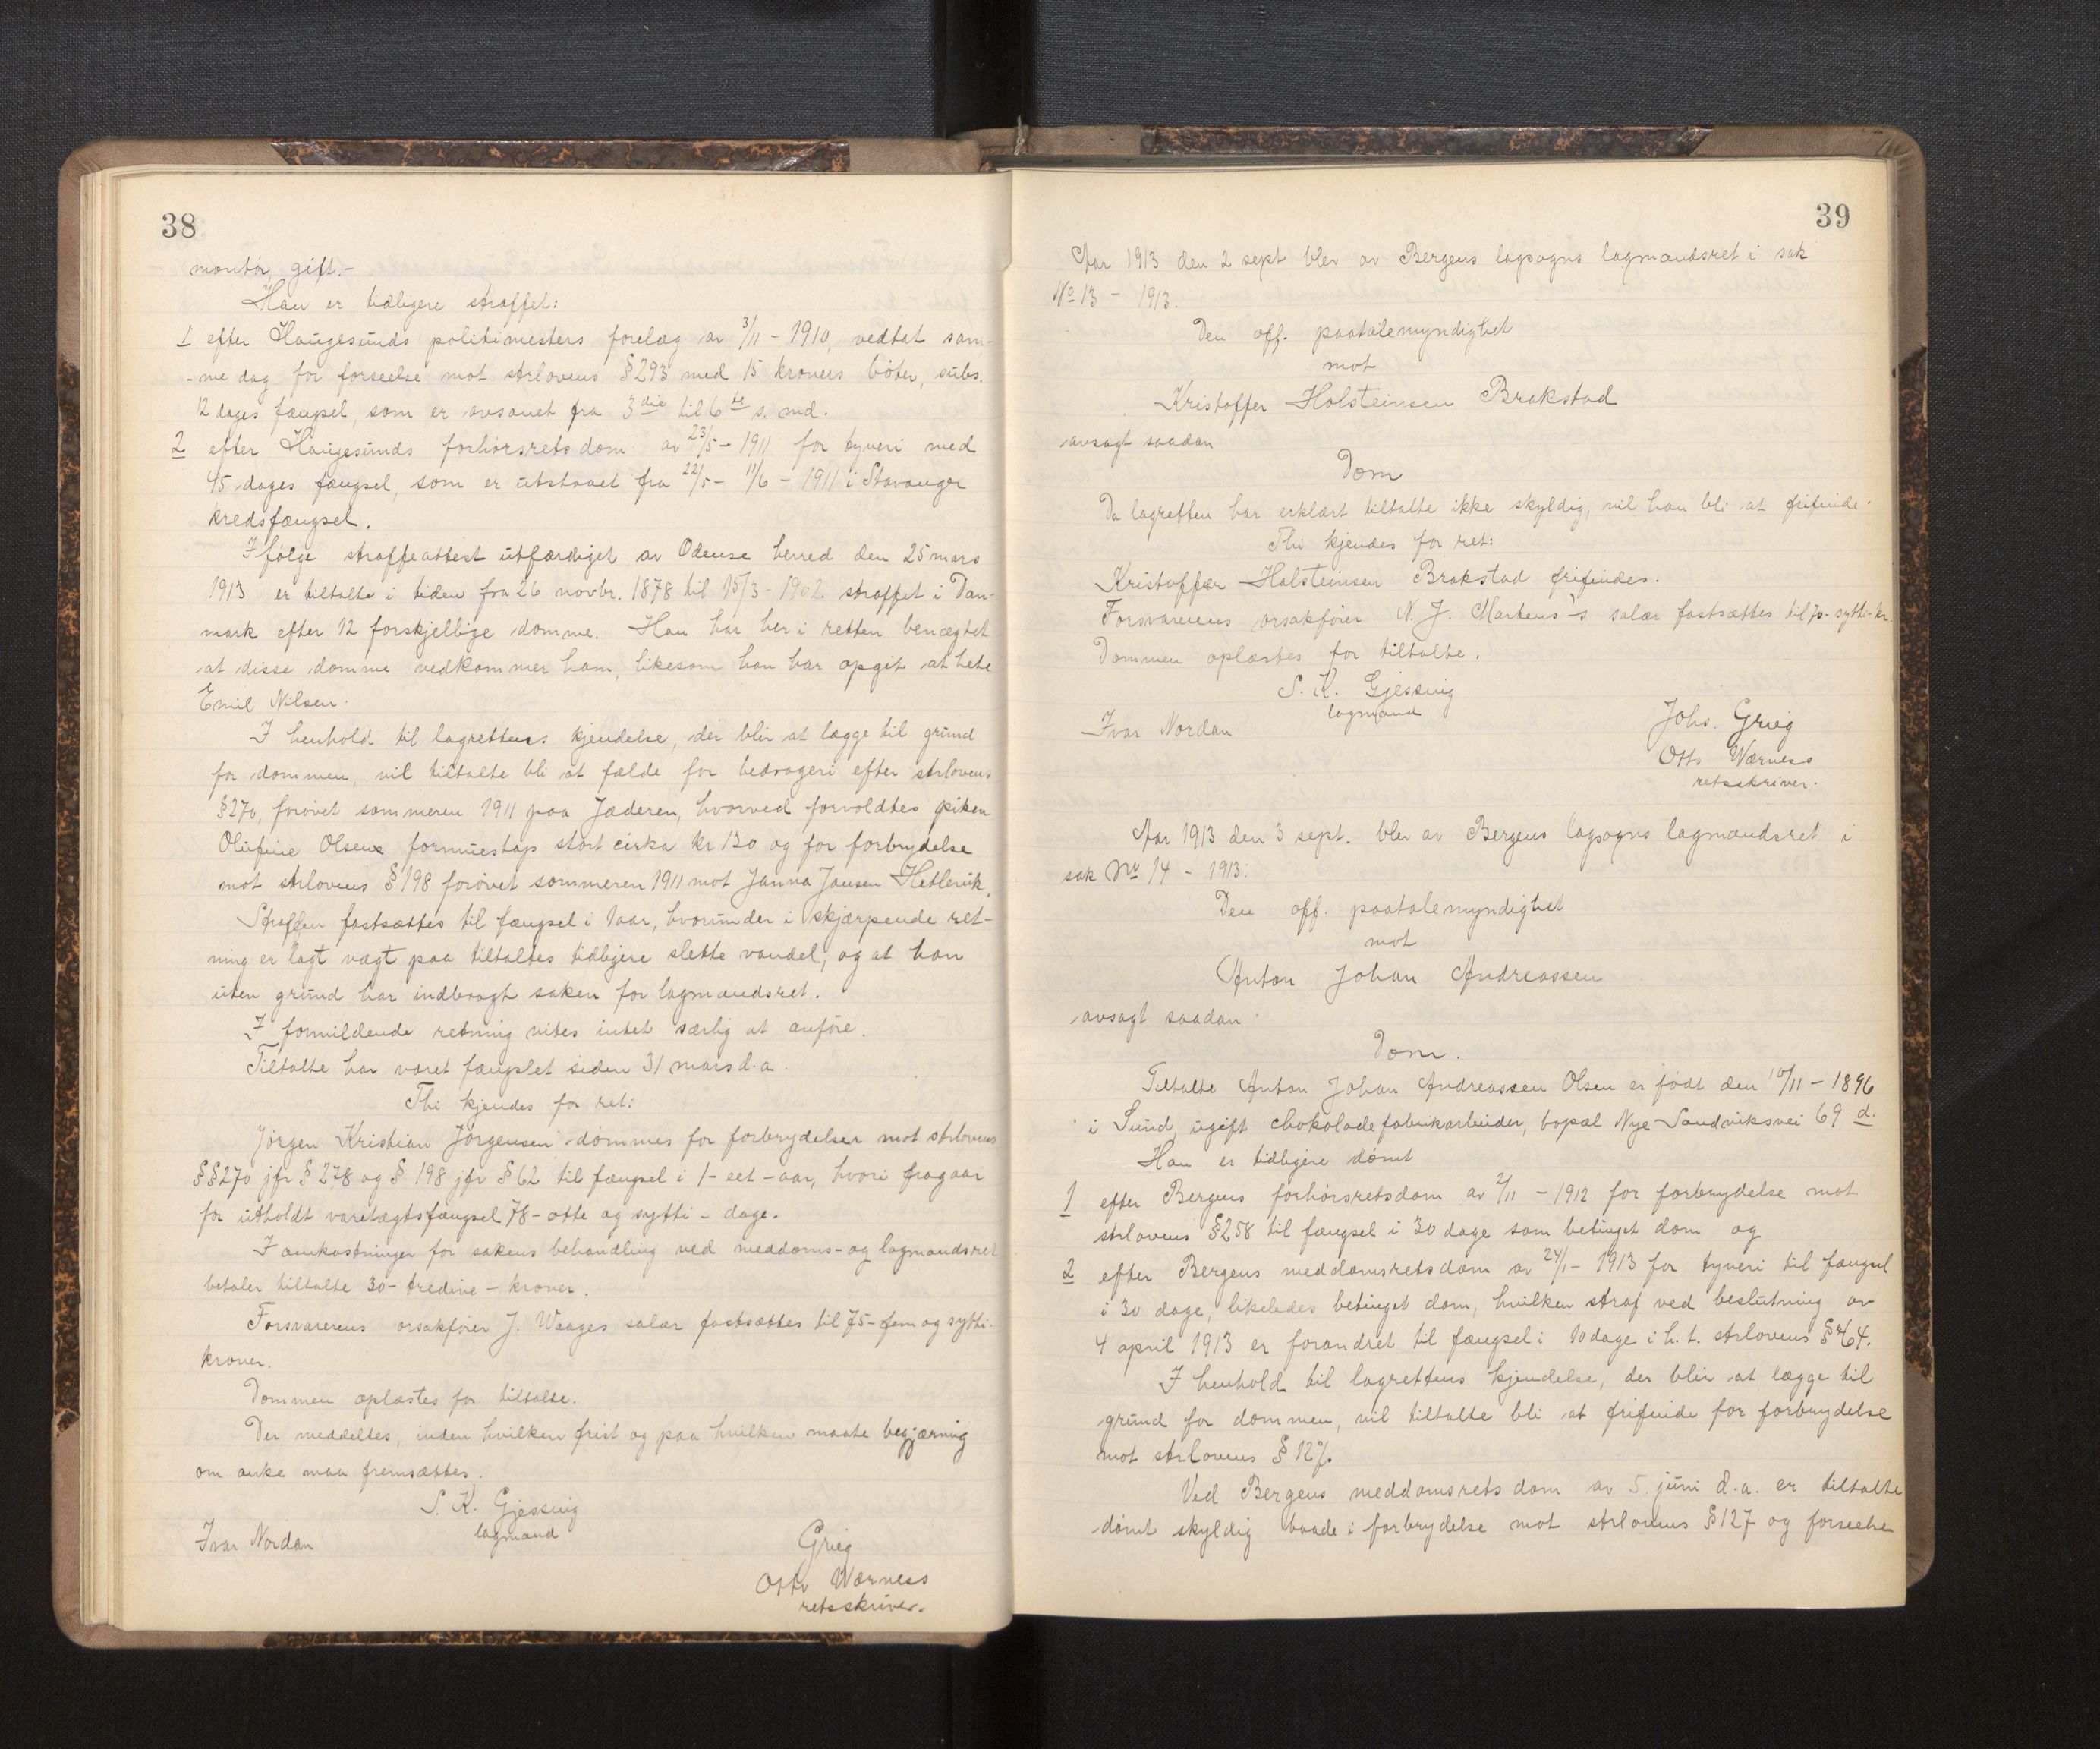 38
montør, gift.-
Han er tidligere straffet:
1 efter Haugesunds politimesters forelæg av 3/11 - 1910, vedtat sam-
-me dag for forseelse mot strlovens § 293 med 15 kroners bøter, subs.
12 dages fængsel, som er avsonet fra 3die til 6te s. md.
2 efter Haugesunds forhørsrets dom av 23/5 - 1911 for tyveri med
45 dages fængsel, som er utstaaet fra 22/5 - 11/6 - 1911 i Stavanger
kredsfængsel.
Ifølge straffeattest utfærdiget av Odense herred den 25 mars
1913 er tiltalte i tiden fra 26 novbr. 1878 til 15/3 - 1902 straffet i Dan-
mark efter 12 forskjellige domme. Han har her i retten benægtet
at disse domme vedkommer ham, likesom han har opgit at hete
Emil Nilsen.
I henhold til lagrettens kjendelse, der blir at lægge til grund
for dommen, vil tiltalte bli at fælde for bedrageri efter strlovens
§ 270, forøvet sommeren 1911 paa Jæderen, hvorved forvoldtes piken
Olufine Olsens formuestap stort cirka kr 130 og for forbrydelse
mot strlovens § 198 forøvet sommeren 1911 mot Janna Jansen Hetlevik.
Straffen fastsættes til fængsel i 1 aar, hvorunder i skjærpende ret-
ning er lagt vægt paa tiltaltes tidligere slette vandel, og at han
uten grund har indbragt saken for lagmandsret.
I formildende retning vites intet særlig at anføre.
Tiltalte har været fængslet siden 31 mars d.a.
Thi kjendes for ret:
Jørgen Kristian Jørgensen dømmes for forbrydelser mot strlovens
§§ 270 jfr § 278 og § 198 jfr § 62 til fængsel i 1 - eet - aar, hvori fragaar
for utholdt varetægtsfængsel 78 - otte og sytti - dage.
I omkostninger for sakens behandling ved meddoms- og lagmandsret
betaler tiltalte 30 - tredive - kroner.
Forsvarerens orsakfører J. Waages salær fastsættes til 75 - fem og sytti-
kroner.
Dommen oplæstes for tiltalte.
Der meddeltes, inden hvilken frist og paa hvilken maate begjæring
om anke maa fremsættes.
S. K. Gjessing
lagmand
Ivar Nordan
Grieg
Otto Wærness
retsskriver.
39
Aar 1913 den 2 sept blev av Bergens lagsogns lagmandsret i sak
No 13 - 1913.
Den off. paatalemyndighet
mot
Kristoffer Holsteinsen Brakstad
avsagt saadan
Dom
Da lagretten har erklært tiltalte ikke skyldig, vil han bli at frifinde.
Thi kjendes for ret:
Kristoffer Holsteinsen Brakstad frifindes.
Forsvarerens orsakfører N. J. Martens's salær fastsættes til 70 - sytti - kr.
Dommen oplæstes for tiltalte.
S. K. Gjessing
lagmand
Ivar Nordan
Johs. Grieg
Otto Wærness
retsskriver.
Aar 1913 den 3 sept. blev av Bergens lagsogns lagmandsret i
sak Nr 14 - 1913:
Den off. paatalemyndighet
mot
Anton Johan Andreassen
avsagt saadan
Dom.
Tiltalte Anton Johan Andreassen Olsen er født den 10/11 - 1896
i Sund, ugift chokoladefabrikarbeider, bopæl Nye Sandviksvei 69 d.
Han er tidligere dømt
1 efter Bergens forhørsretsdom av 2/11 - 1912 for forbrydelse mot
strlovens § 258 til fængsel i 30 dage som betinget dom og
2 efter Bergens meddomsretsdom av 24/1 - 1913 for tyveri til fængsel
i 30 dage, likeledes betinget dom, hvilken straf ved beslutning av
4 april 1913 er forandret til fængsel i 10 dage i h. t. strlovens § 64.
I henhold til lagrettens kjendelse, der blir at lægge til
grund for dommen, vil tiltalte bli at frifinde for forbrydelse
mot strlovens § 127.
Ved Bergens meddomsrets dom av 5 juni d.a. er tiltalte
dømt skyldig baade i forbrydelse mot strlovens § 127 og forseelse